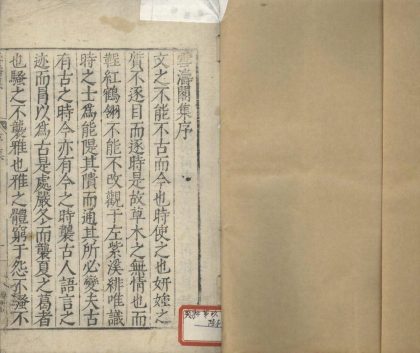 雪濤閣集序
文之不能不古而今也時使之也妍媸之
質不逐目而逐時是故草木之無情也而
鞓紅鶴翎不能不改觀于左紫溪緋唯識
時之士爲能隄其隤而通其所必變夫古
有古之時今亦有今之時襲古人語言之
迹而冐以爲古是處嚴冬而襲夏之葛者
也騷之不襲雅也雅之體窮于怨不騷不